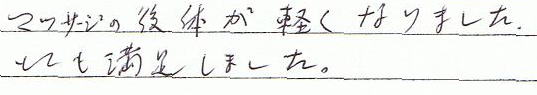 マッサージの後体が軽くなりました.
とても満足しました。